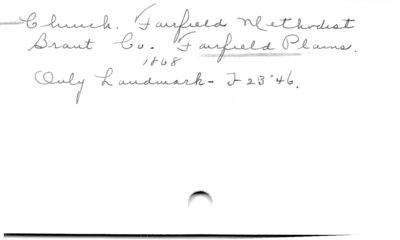 Church. Fairfield Methodist
Brant Co. Fairfield Plains.
1868
Only Landmark - F 23'46.